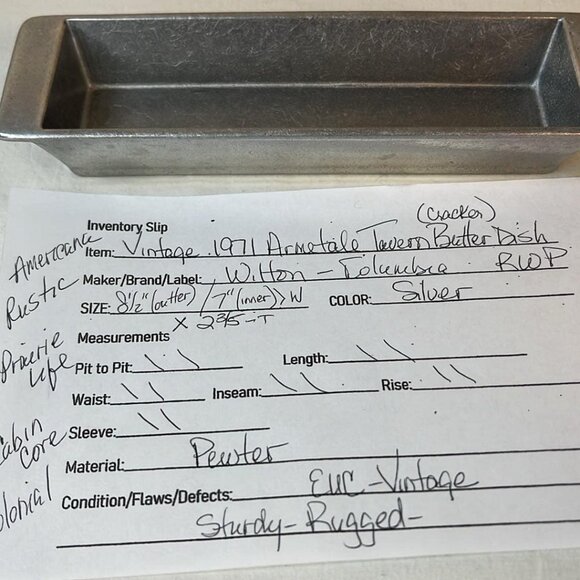 (Cracker)
Inventory Slip
Item: Vintage 1971 Armetale Tavern Butter Dish
Maker/Brand/Label: Wilton - Columbia RWP
SIZE: 8½" (outter) / 7" (inner) > W COLOR: Silver
Measurements
Pit to Pit: \ \ Length: \ \
Waist: \ \ Inseam: \ \ Rise: \ \
Sleeve: \ \
Material: Pewter
Condition/Flaws/Defects: EUC - Vintage
Sturdy - Rugged -
Americana
Rustic
Prairie
Life
Cabin
Core
Colonial